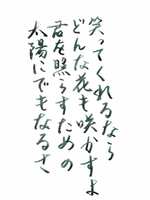 笑ってくれるなら
どんな花も咲かすよ
君を照らすための
太陽にでもなるさ